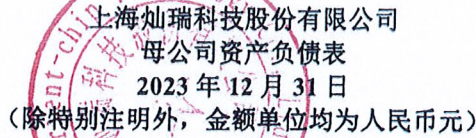 上海灿瑞科技股份有限公司
母公司资产负债表
2023 年 12 月 31 日
（除特别注明外，金额单位均为人民币元）